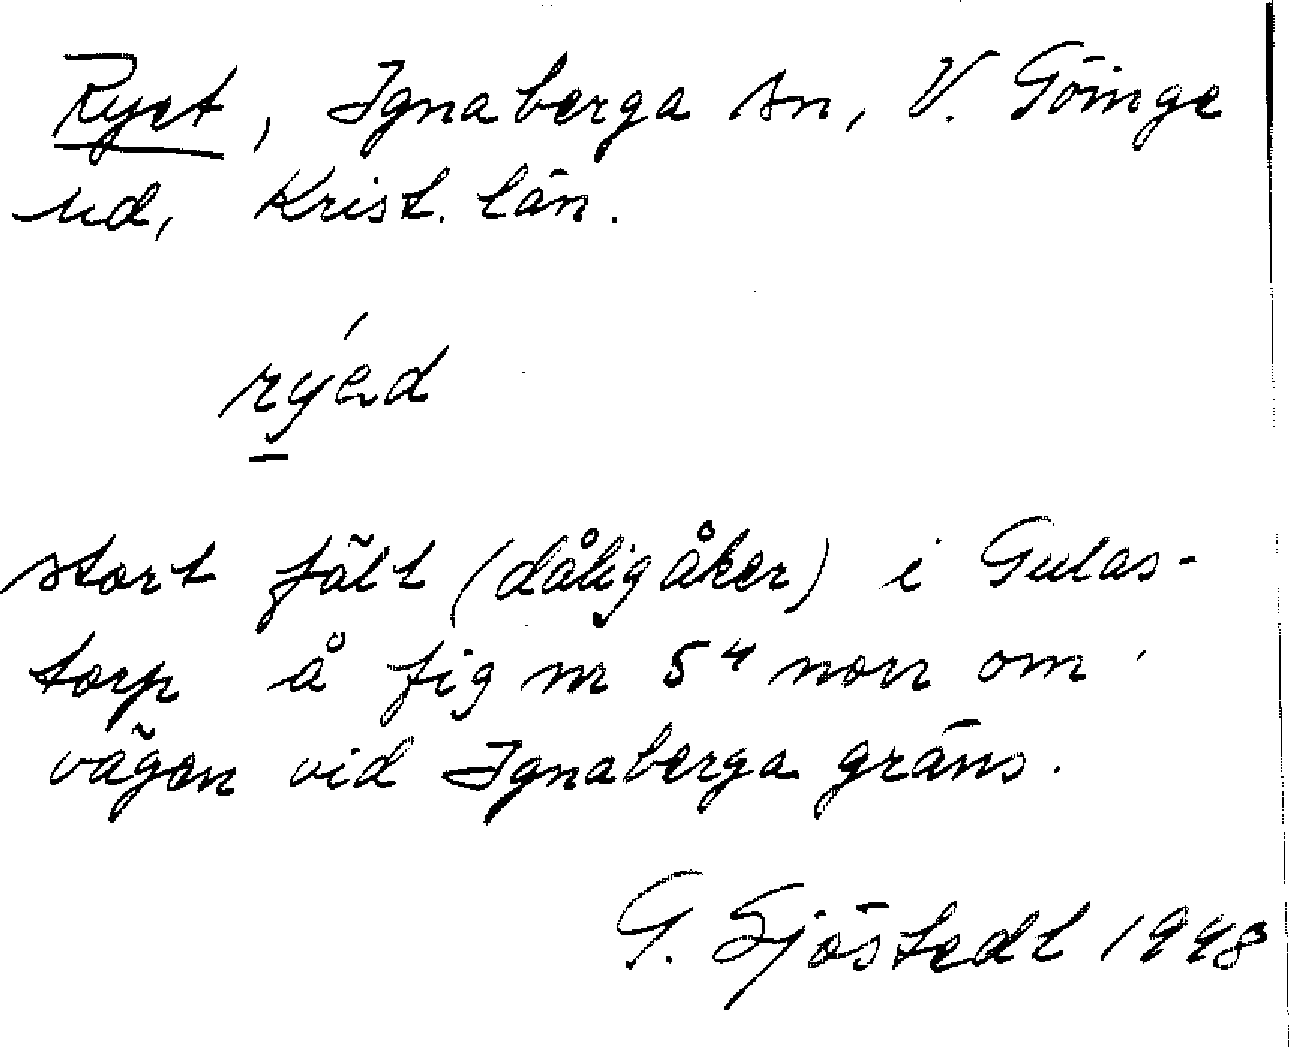 Ryet, Ignaberga sn, V. Göinge
hd, Krist. län.
rýed
stort fält (dålig åker) i Gulas-
torp å fig nr 54 norr om
vägen vid Ignaberga gräns.
G. Sjöstedt 1948